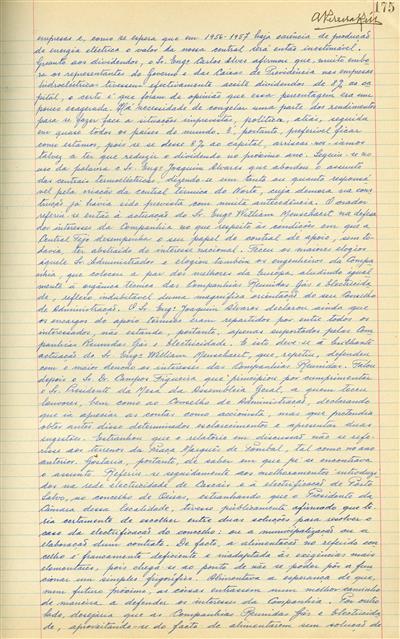 175
empresa e, como se espera que em 1956-1957 haja carência de produção
de energia eléctrica o valor da nossa central será então inestimável.
Quanto aos dividendos, o Sr. Engº Carlos Alves afirmou que, muito embo-
ra os representantes do Governo e das Caixas de Previdência nas empresas
hidroeléctricas tivessem efectivamente aceite dividendos de 8% ao ca-
pital, o certo é que foram de opinião que essa percentagem era um
pouco exagerada. Há necessidade de congelar uma parte dos rendimentos
para se fazer face a situações imprevistas, política, aliás, seguida
em quase todos os países do mundo. É, portanto, preferível ficar
como estamos, pois se se desse 8% ao capital, arriscar-nos-íamos
talvez a ter que reduzir o dividendo no próximo ano. Seguiu-se no
uso da palavra o Sr. Engº Joaquim Alvares que abordou o assunto
das centrais termoeléctricas, dizendo-se em tanto ou quanto responsá-
vel pela criação da central térmica do Norte, cuja demora na cons-
trução já havia sido prevista com muita antecedência. O orador
referiu-se então à actuação do Sr. Engº William Mousebaert na defesa
dos interesses da Companhia no que respeita às condições em que a
Central Tejo desempenhou o seu papel de central de apoio, sem to-
davia, ter abstraído do interesse nacional. Teceu os maiores elogios
àquele Sr. Administrador e elogiou também os engenheiros da Compa-
nhia, que colocou a par dos melhores da Europa aludindo igual-
mente à orgânica técnica das Companhias Reunidas Gás e Electricida-
de, reflexo indubitável duma magnífica orientação do seu Conselho
de Administração. O Sr. Engº Joaquim Alvares declarou ainda que
os encargos do apoio térmico eram repartidos por entre todos os
interessados, não estando, portanto, apenas suportados pelas Com-
panhias Reunidas Gás e Electricidade. E isto deve-se à brilhante
actuação do Sr. Engº William Mousebaert, que, repetiu, defendeu
com o maior denodo os interesses das Companhias Reunidas. Falou
depois o Sr. Dr. Campos Figueira que principiou por cumprimentar
o Sr. Presidente da Mesa da Assembleia Geral, a quem teceu
louvores, bem como ao Conselho de Administração, declarando
que ia apreciar as contas como accionista, mas que pretendia
obter antes disso determinados esclarecimentos e apresentar duas
sugestões. Estranhou que o relatório em discussão não se refe-
risse aos terrenos da Praça Marquês de Pombal, tal como no ano
anterior. Gostaria, portanto, de saber em que pé se encontrava
o assunto. Referiu-se seguidamente aos melhoramentos introduzi-
dos na rede electricidade de Cascais e à electrificação de Porto
Salvo, no concelho de Oeiras, estranhando que o Presidente da
Câmara dessa localidade, tivesse públicamente afirmado que te-
ria certamente de escolher entre duas soluções para resolver o
caso da electrificação do concelho: ou a municipalização ou a
elaboração dum contrato. De facto, a alimentação no referido con-
celho é francamente deficiente e inadaptada às exigências mais
elementares, pois chega-se ao ponto de não se poder pôr a fun-
cionar um simples frigorífico. Alimentava a esperança de que,
num futuro próximo, as coisas entrassem num melhor caminho
de maneira a defender os interesses da Companhia. Por outro
lado, desejaria que as Companhias Reunidas Gás e Electricida-
de, aproveitando-se do facto de alimentarem sem solução de